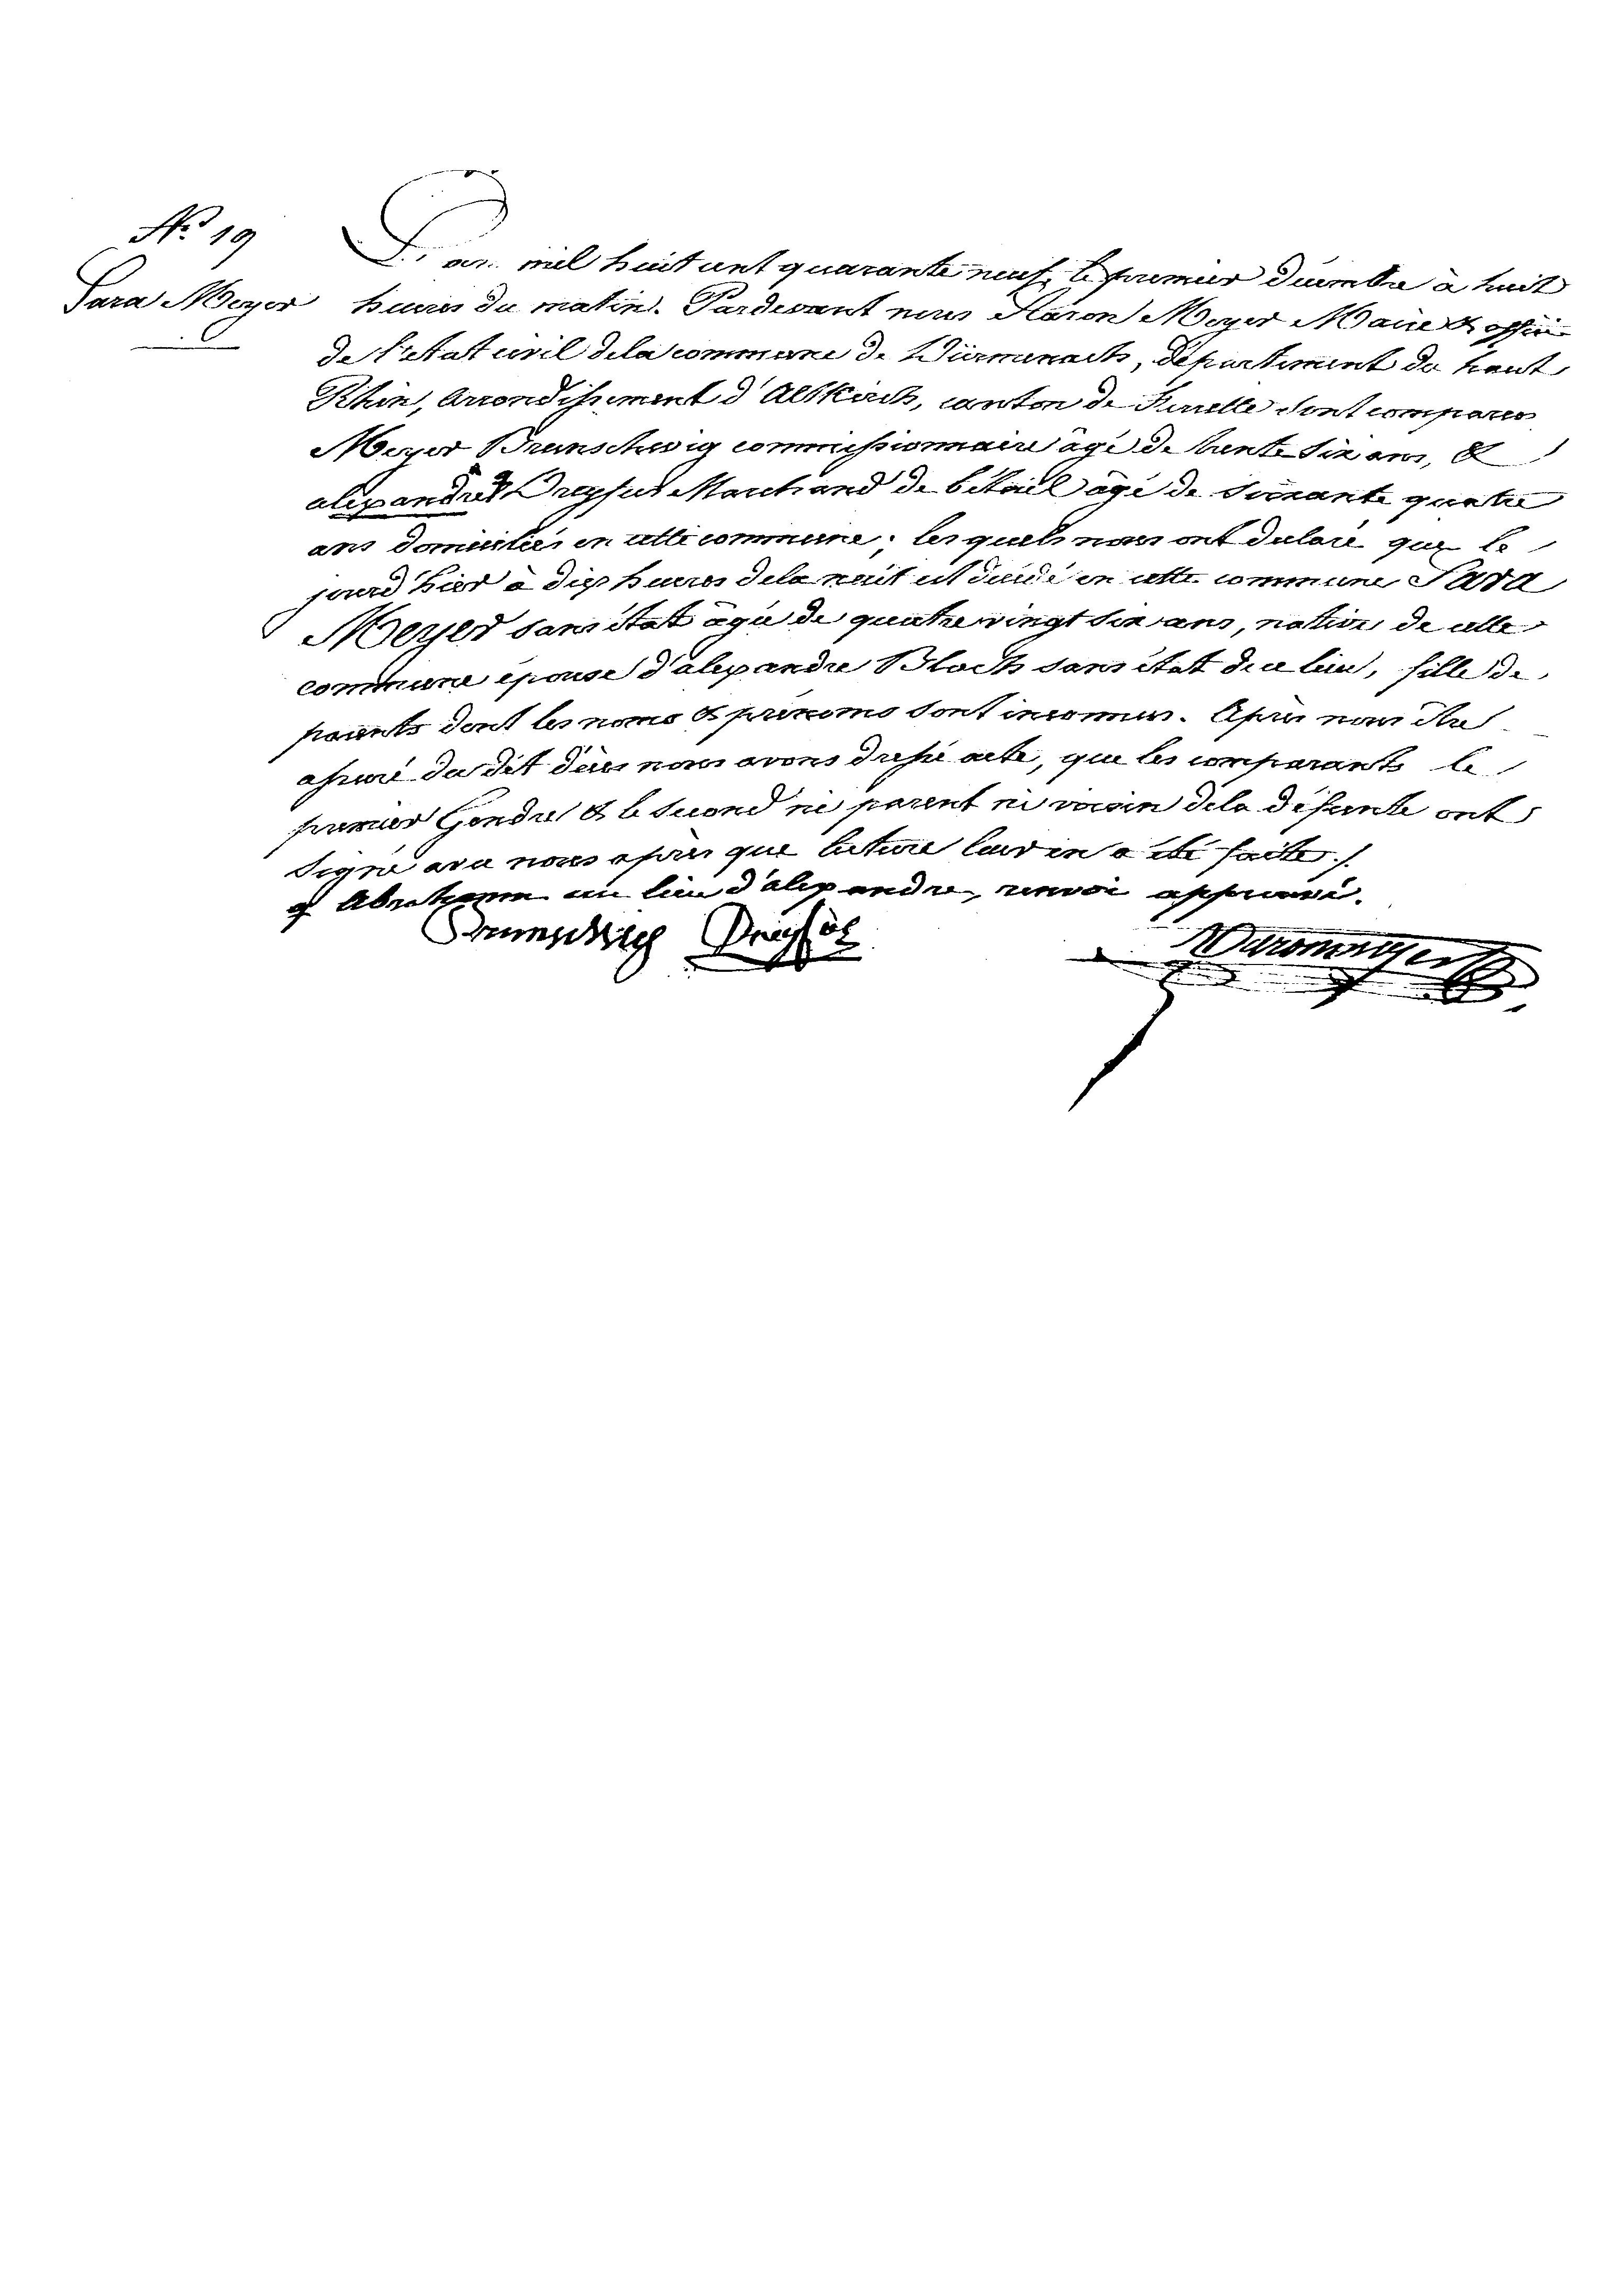 N.º 19
Sara Meyer
L'an mil huit cent quarante neuf, le premier décembre à huit
heures du matin. Pardevant nous Aaron Meyer Maire & officier
de l'etat civil de la commune de Dürmenach, département du haut
Rhin, Arrondissement d'Altkirch, canton de Ferrette sont comparus
Meyer Brunschwig commissionnaire âgé de trente six ans, &
alexandre Dreyfus Marchand de bétail âgé de soixante quatre
ans domiciliés en cette commune; les quels nous ont déclaré que le
jourd hier à dix heures de la nuit est décédé en cette commune Sara
Meyer sans état âgée de quatre vingt six ans, native de cette
commune épouse d'alexandre Bloch sans état de ce lieu, fille de
parents dont les noms & prénoms sont inconnus. Après nous être
assuré du dit décès nous avons dressé acte, que les comparants le
premier Gendre & le second ni parent ni voisin de la défunte ont
signé avec nous après que lecture leur en a été faite ./.
Abraham au lieu d'alexandre, renvoi approuvé.
Brunschwig Dreyfus
Aaron Meyer